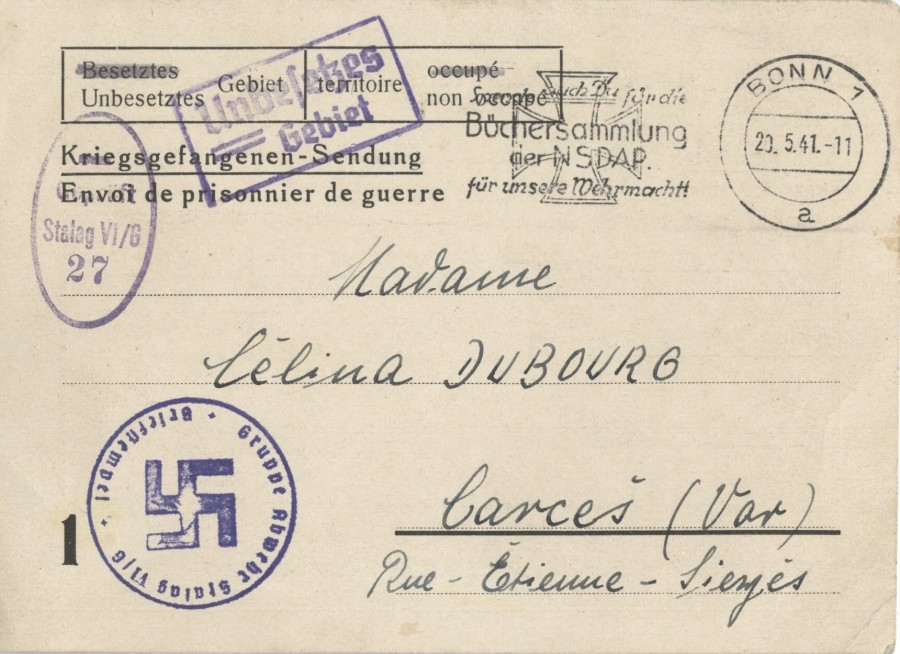 Besetztes
Unbesetztes
Gebiet
territoire
occupé
non occupé
Unbesetztes
Gebiet
Kriegsgefangenen-Sendung
Envoi de prisonnier de guerre
Stalag VI/G
27
auch Du für die
Büchersammlung
der NSDAP.
für unsere Wehrmacht!
BONN 1
20.5.41.-11
a
Madame
Célina DUBOURG
Carcès (Var)
Rue - Étienne -
1
Gruppe Abwehr Stalag VI/G
Briefstempel